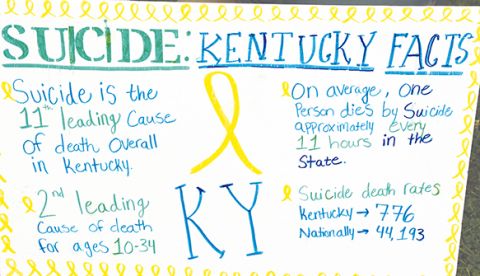 SUICIDE: KENTUCKY FACTS
Suicide is the
11th leading cause
of death overall
in Kentucky.
2nd leading
Cause of death
for ages 10-34
KY
On average, one
Person dies by Suicide
approximately every
11 hours in the
State.
Suicide death rates
Kentucky → 776
Nationally → 44,193